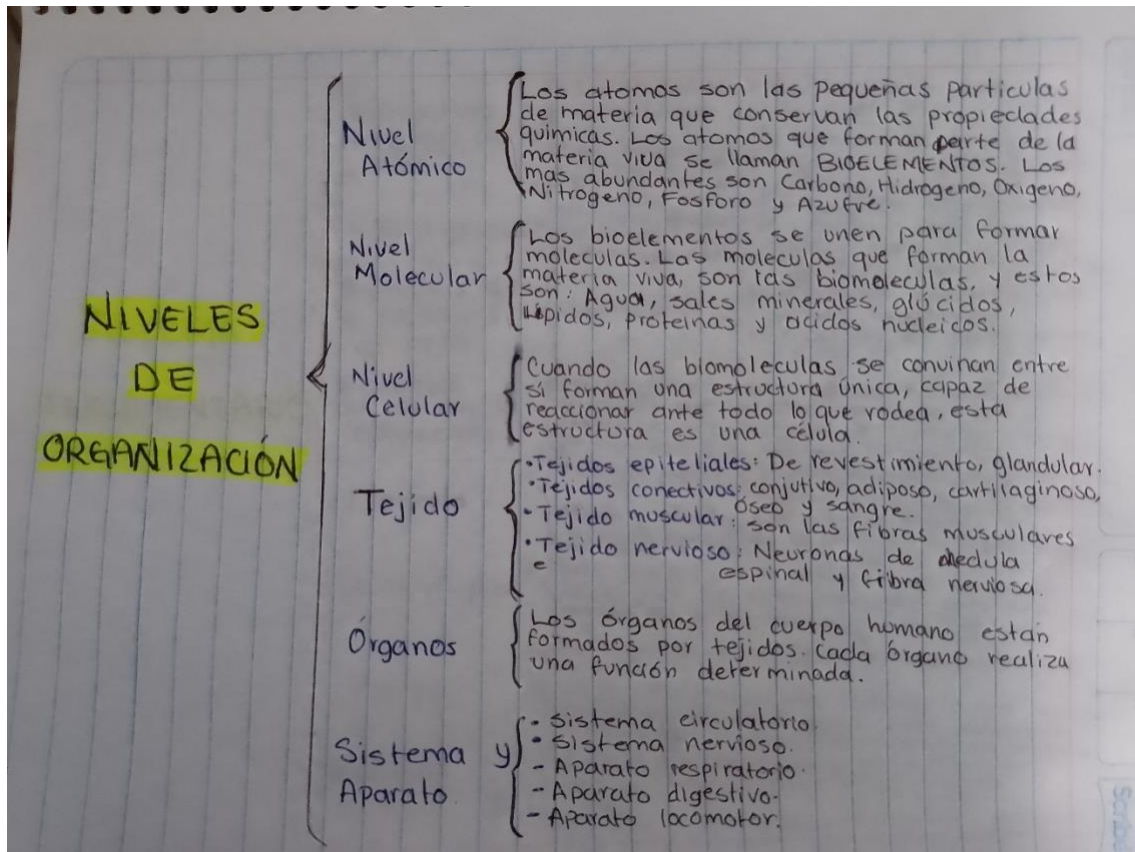 NIVELES
DE
ORGANIZACIÓN
Nivel
Atómico
Los atomos son las pequeñas particulas
de materia que conservan las propiedades
quimicas. Los atomos que forman parte de la
materia viva se llaman BIOELEMENTOS. Los
mas abundantes son Carbono, Hidrogeno, Oxigeno,
Nitrogeno, Fosforo y Azufre.
Nivel
Molecular
Los bioelementos se unen para formar
moleculas. Las moleculas que forman la
materia viva, son las biomoleculas, y estos
son: Agua, sales minerales, glúcidos,
Lípidos, proteinas y acidos nucleicos.
Nivel
Celular
Cuando las biomoleculas se convinan entre
sí forman una estructura única, capaz de
reaccionar ante todo lo que rodea, esta
estructura es una célula.
Tejido
•Tejidos epiteliales: De revestimiento, glandular.
•Tejidos conectivos: conjutivo, adiposo, cartilaginoso,
óseo y sangre.
•Tejido muscular: son las fibras musculares
•Tejido nervioso: Neuronas de medula
e espinal y fibra nerviosa.
Órganos
Los órganos del cuerpo humano están
formados por tejidos. Cada órgano realiza
una función determinada.
Sistema y
Aparato
- Sistema circulatorio.
• Sistema nervioso.
- Aparato respiratorio.
- Aparato digestivo.
- Aparato locomotor.
Scribe